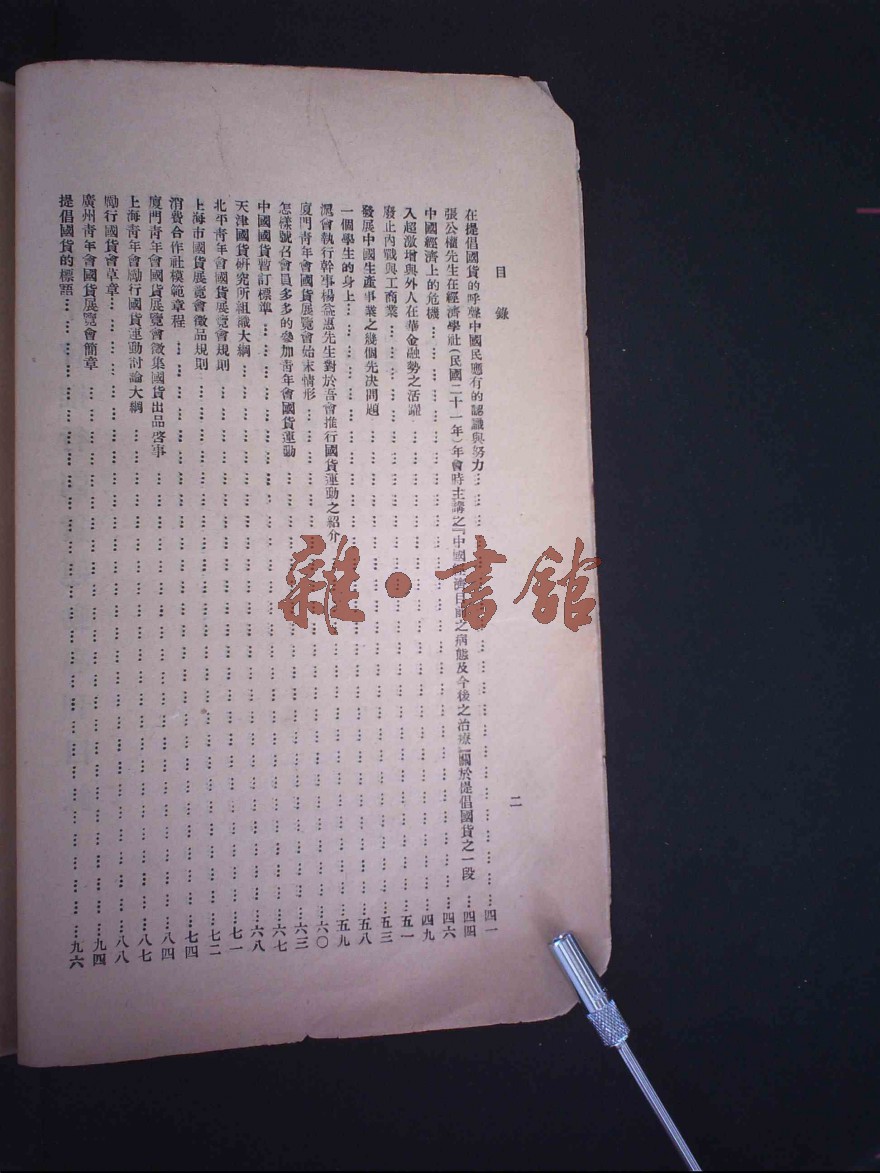 目錄
二
在提倡國貨的呼聲中國民應有的認識與努力……四一
張公權先生在經濟學社(民國二十一年)年會時主講之『中國經濟目前之病態及今後之治療』關於提倡國貨之一段……四四
中國經濟上的危機……四六
入超激增與外人在華金融勢之活躍……四九
廢止內戰與工商業……五一
發展中國生產事業之幾個先決問題……五三
一個學生的身上……五八
滬會執行幹事楊益惠先生對於吾會推行國貨運動之紹介……五九
廈門靑年會國貨展覽會始末情形……六〇
怎樣號召會員多多的參加靑年會國貨運動……六三
中國國貨暫訂標準……六七
天津國貨研究所組織大綱……六八
北平靑年會國貨展覽會規則……七一
上海市國貨展覽會徵品規則……七二
消費合作社模範章程……七四
廈門靑年會國貨展覽會徵集國貨出品啓事……八四
上海靑年會勵行國貨運動討論大綱……八七
勵行國貨會草章……八八
廣州靑年會國貨展覽會簡章……九四
提倡國貨的標語……九六
雜·書館